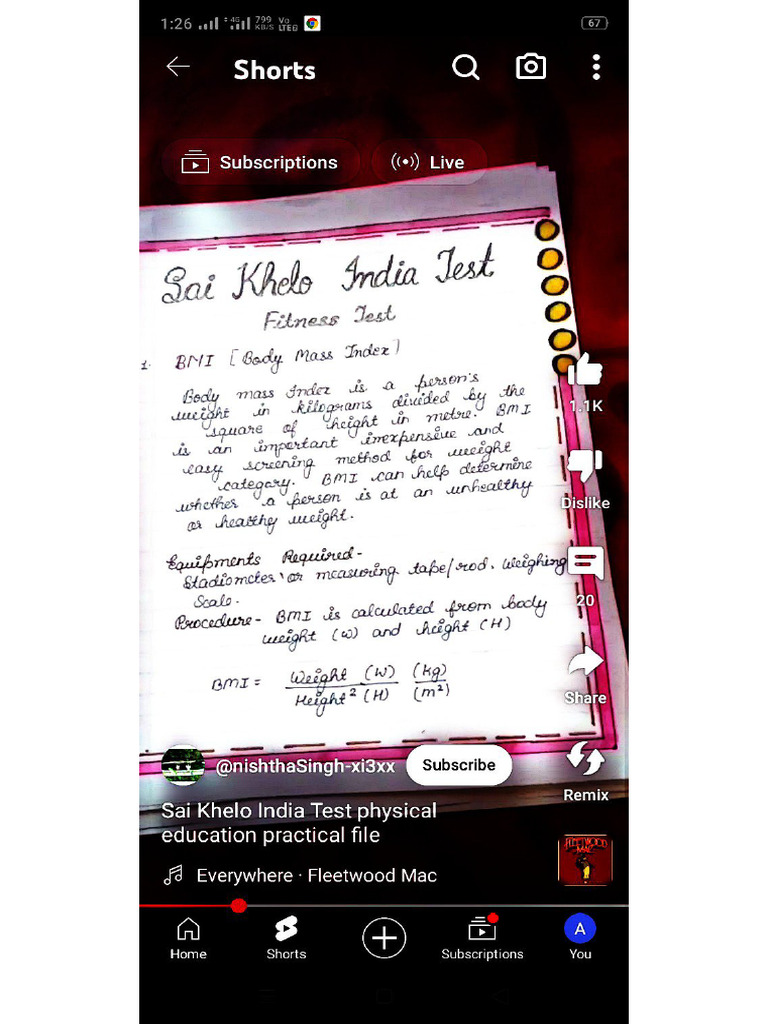 1:26 4G 799 KB/S Vo LTE 67
Shorts
Subscriptions Live
Sai Khelo India Test
Fitness Test
1. BMI [Body Mass Index]
Body mass Index is a person's
weight in kilograms divided by the
square of height in metre. BMI
is an important inexpensive and
easy screening method for weight
category. BMI can help determine
whether a person is at an unhealthy
or healthy weight.
Equipments Required-
Stadiometer or measuring tape/rod. Weighing
Scale.
Procedure- BMI is calculated from body
weight (W) and height (H)
BMI = Weight (W) (kg)
Height² (H) (m²)
1.1K
Dislike
20
Share
Remix
@nishthaSingh-xi3xx Subscribe
Sai Khelo India Test physical
education practical file
Everywhere · Fleetwood Mac
FLEETWOOD
MAC
Home Shorts Subscriptions A You